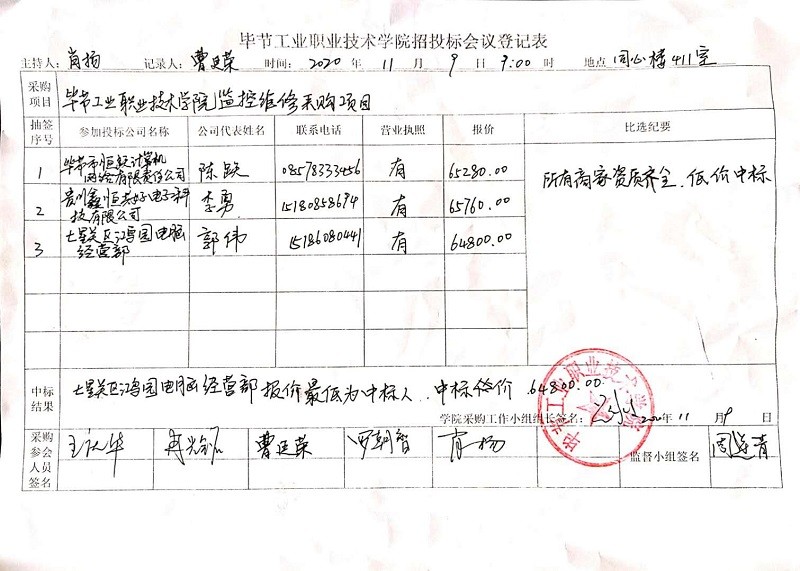 毕节工业职业技术学院招投标会议登记表
主持人: 肖扬 记录人: 曹廷荣 时间: 2020 年 11 月 9 日 9:00 时 地点 同心楼411室
采购项目 毕节工业职业技术学院监控维修采购项目
抽签序号 参加投标公司名称 公司代表姓名 联系电话 营业执照 报价 比选纪要
1 毕节市恒毅计算机网络有限责任公司 陈跃 08578333456 有 65280.00 所有商家资质齐全、低价中标
2 贵州鑫恒友好电子科技有限公司 李勇 15180858694 有 65760.00
3 七星关区鸿图电脑经营部 郭伟 15186080441 有 64800.00
中标结果 七星关区鸿图电脑经营部报价最低为中标人、中标价 64800.00
学院采购工作小组组长签名: 年 11 月 9 日
毕节工业职业技术学院
采购参会人员签名 曹廷荣 罗朝智 肖扬 监督小组签名